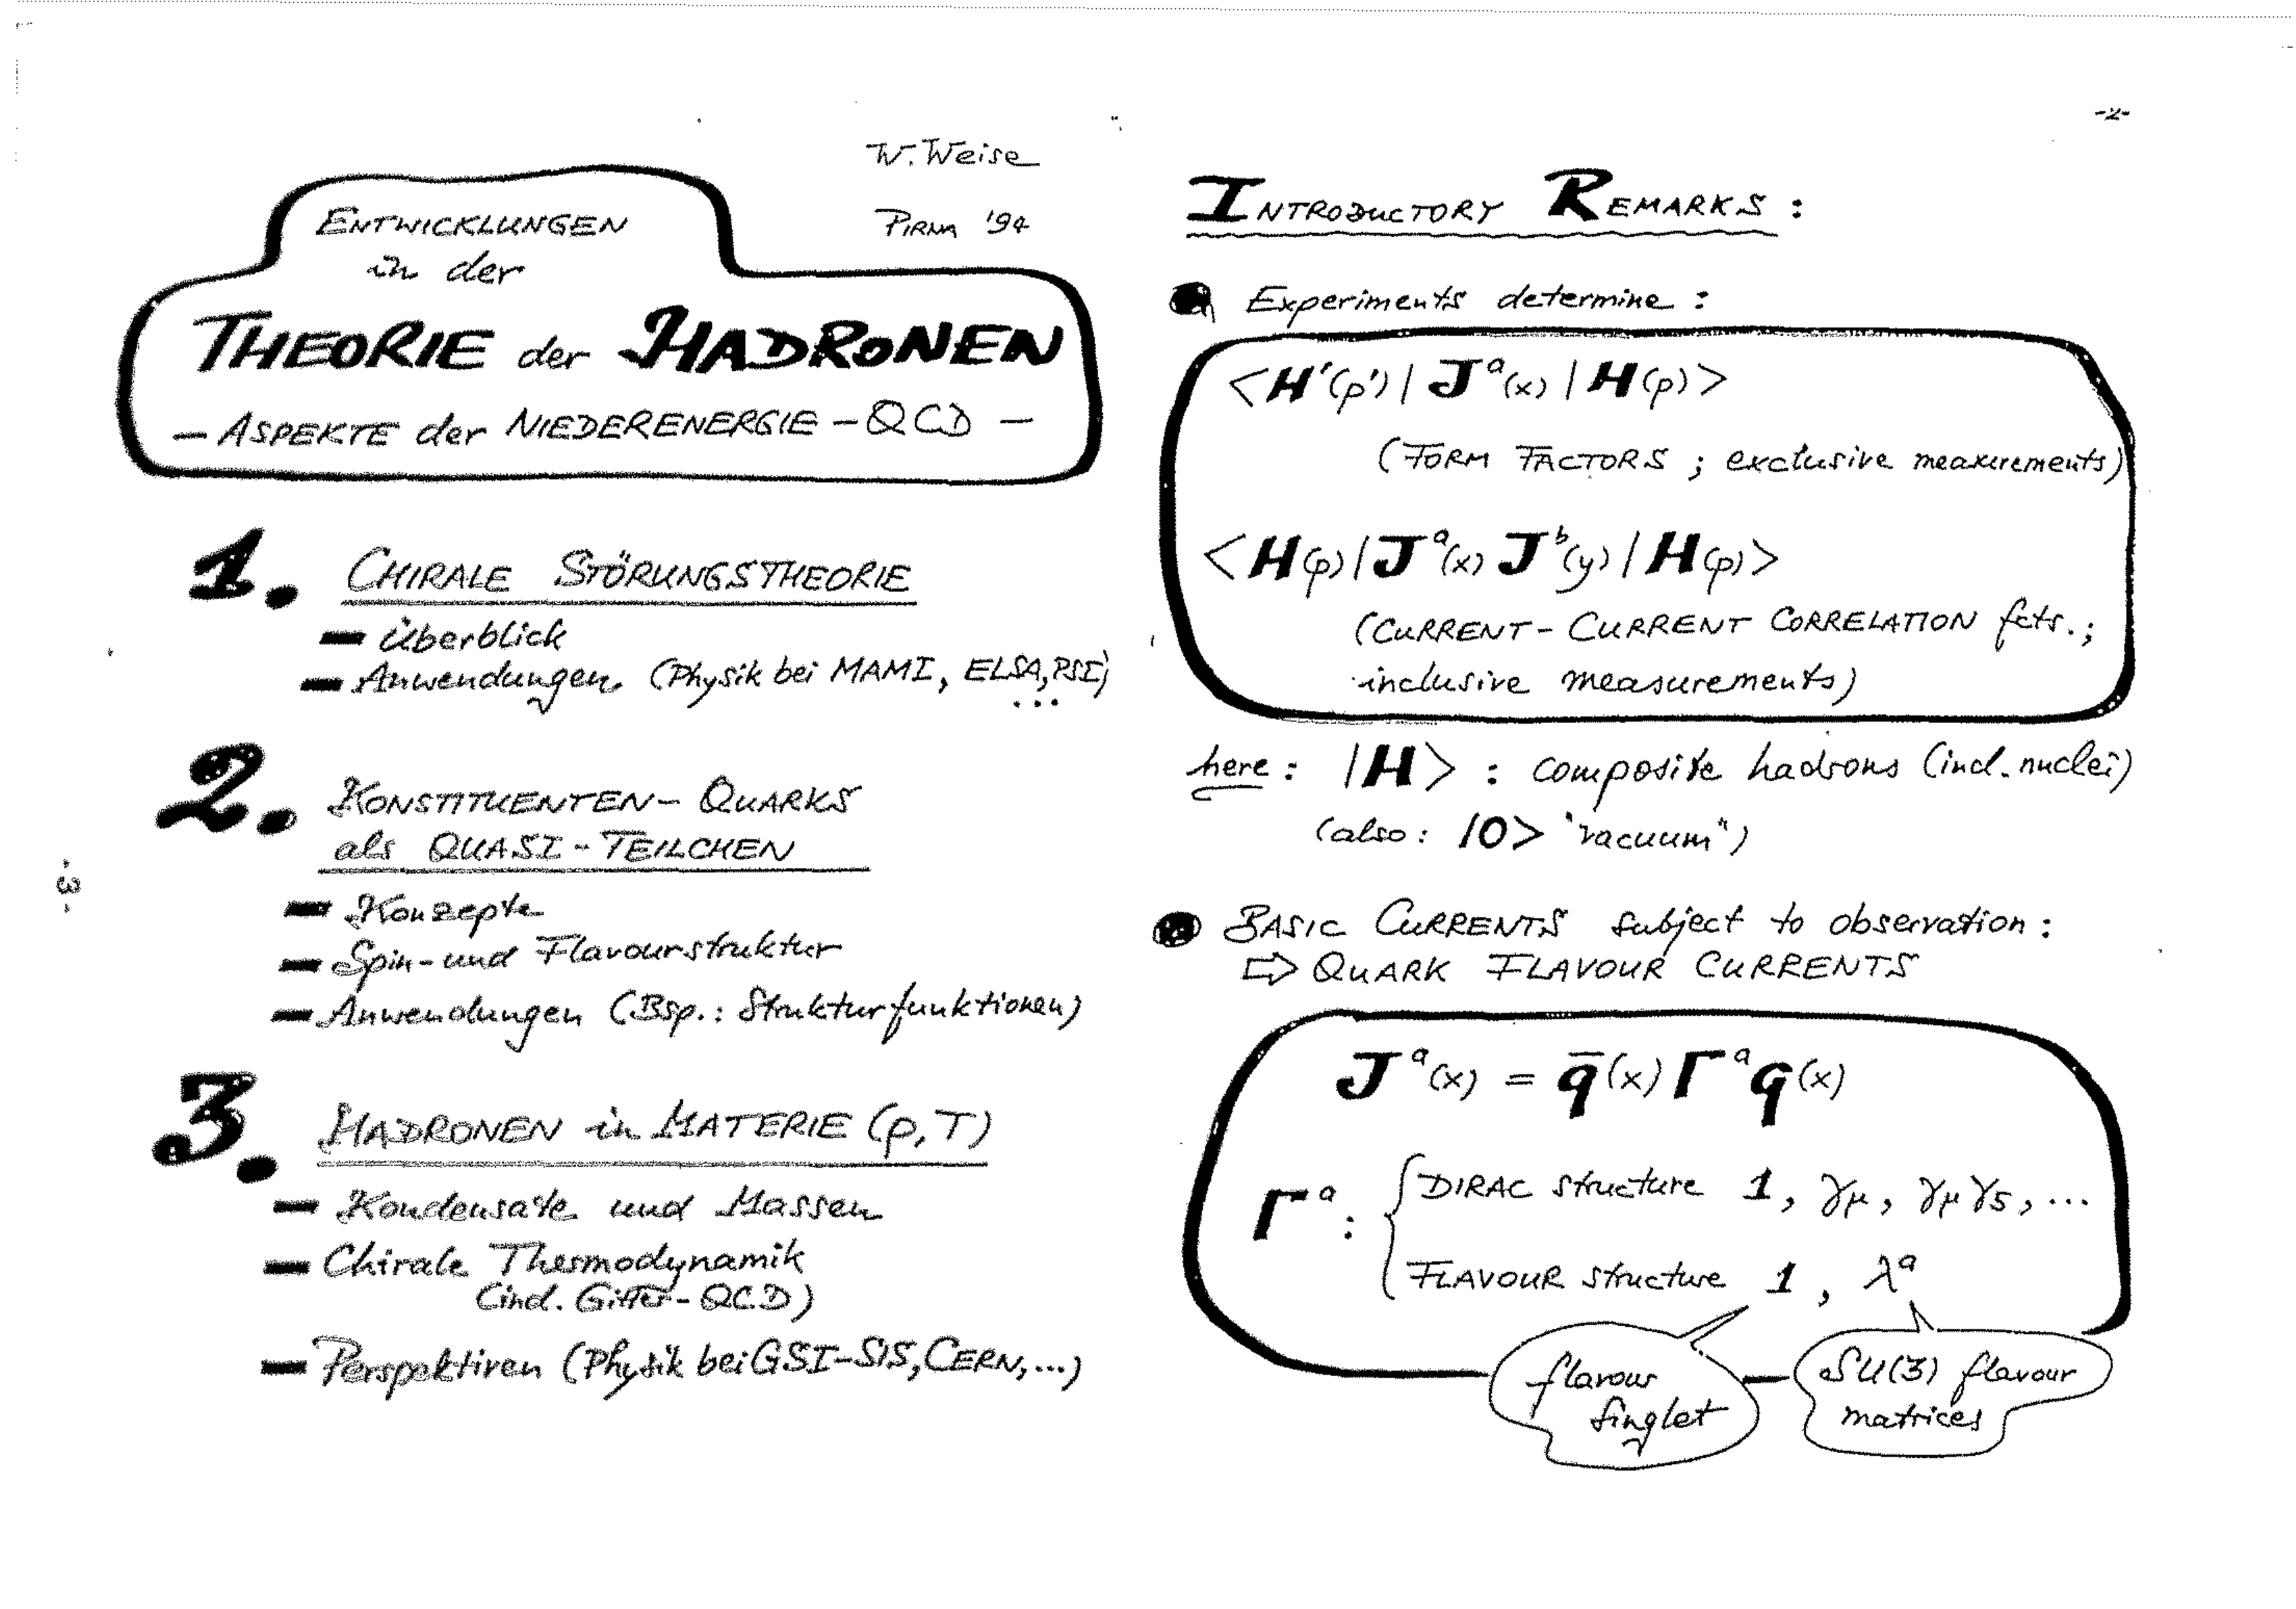 W. Weise
PIRNA '94
ENTWICKLUNGEN
in der
THEORIE der HADRONEN
– ASPEKTE der NIEDERENERGIE – QCD –
1. CHIRALE STÖRUNGSTHEORIE
– Überblick
– Anwendungen (Physik bei MAMI, ELSA, PSI)
...
2. KONSTITUENTEN-QUARKS
als QUASI-TEILCHEN
– Konzepte
– Spin- und Flavourstruktur
– Anwendungen (Bsp.: Strukturfunktionen)
3. HADRONEN in MATERIE (ρ, T)
– Kondensate und Massen
– Chirale Thermodynamik
(incl. Gitter-QCD)
– Perspektiven (Physik bei GSI-SIS, CERN, ...)
-3-
-2-
INTRODUCTORY REMARKS :
● Experiments determine :
<H'(p')| J^a(x) | H(p)>
(FORM FACTORS ; exclusive measurements)
<H(p)| J^a(x) J^b(y) | H(p)>
(CURRENT-CURRENT CORRELATION fcts. ;
inclusive measurements)
here : |H> : composite hadrons (incl. nuclei)
(also : |0> "vacuum")
● BASIC CURRENTS subject to observation :
⇨ QUARK FLAVOUR CURRENTS
J^a(x) = q̄(x) Γ^a q(x)
Γ^a : { DIRAC structure 1, γμ, γμ γ5, ...
FLAVOUR structure 1 , λ^a
flavour
singlet
SU(3) flavour
matrices